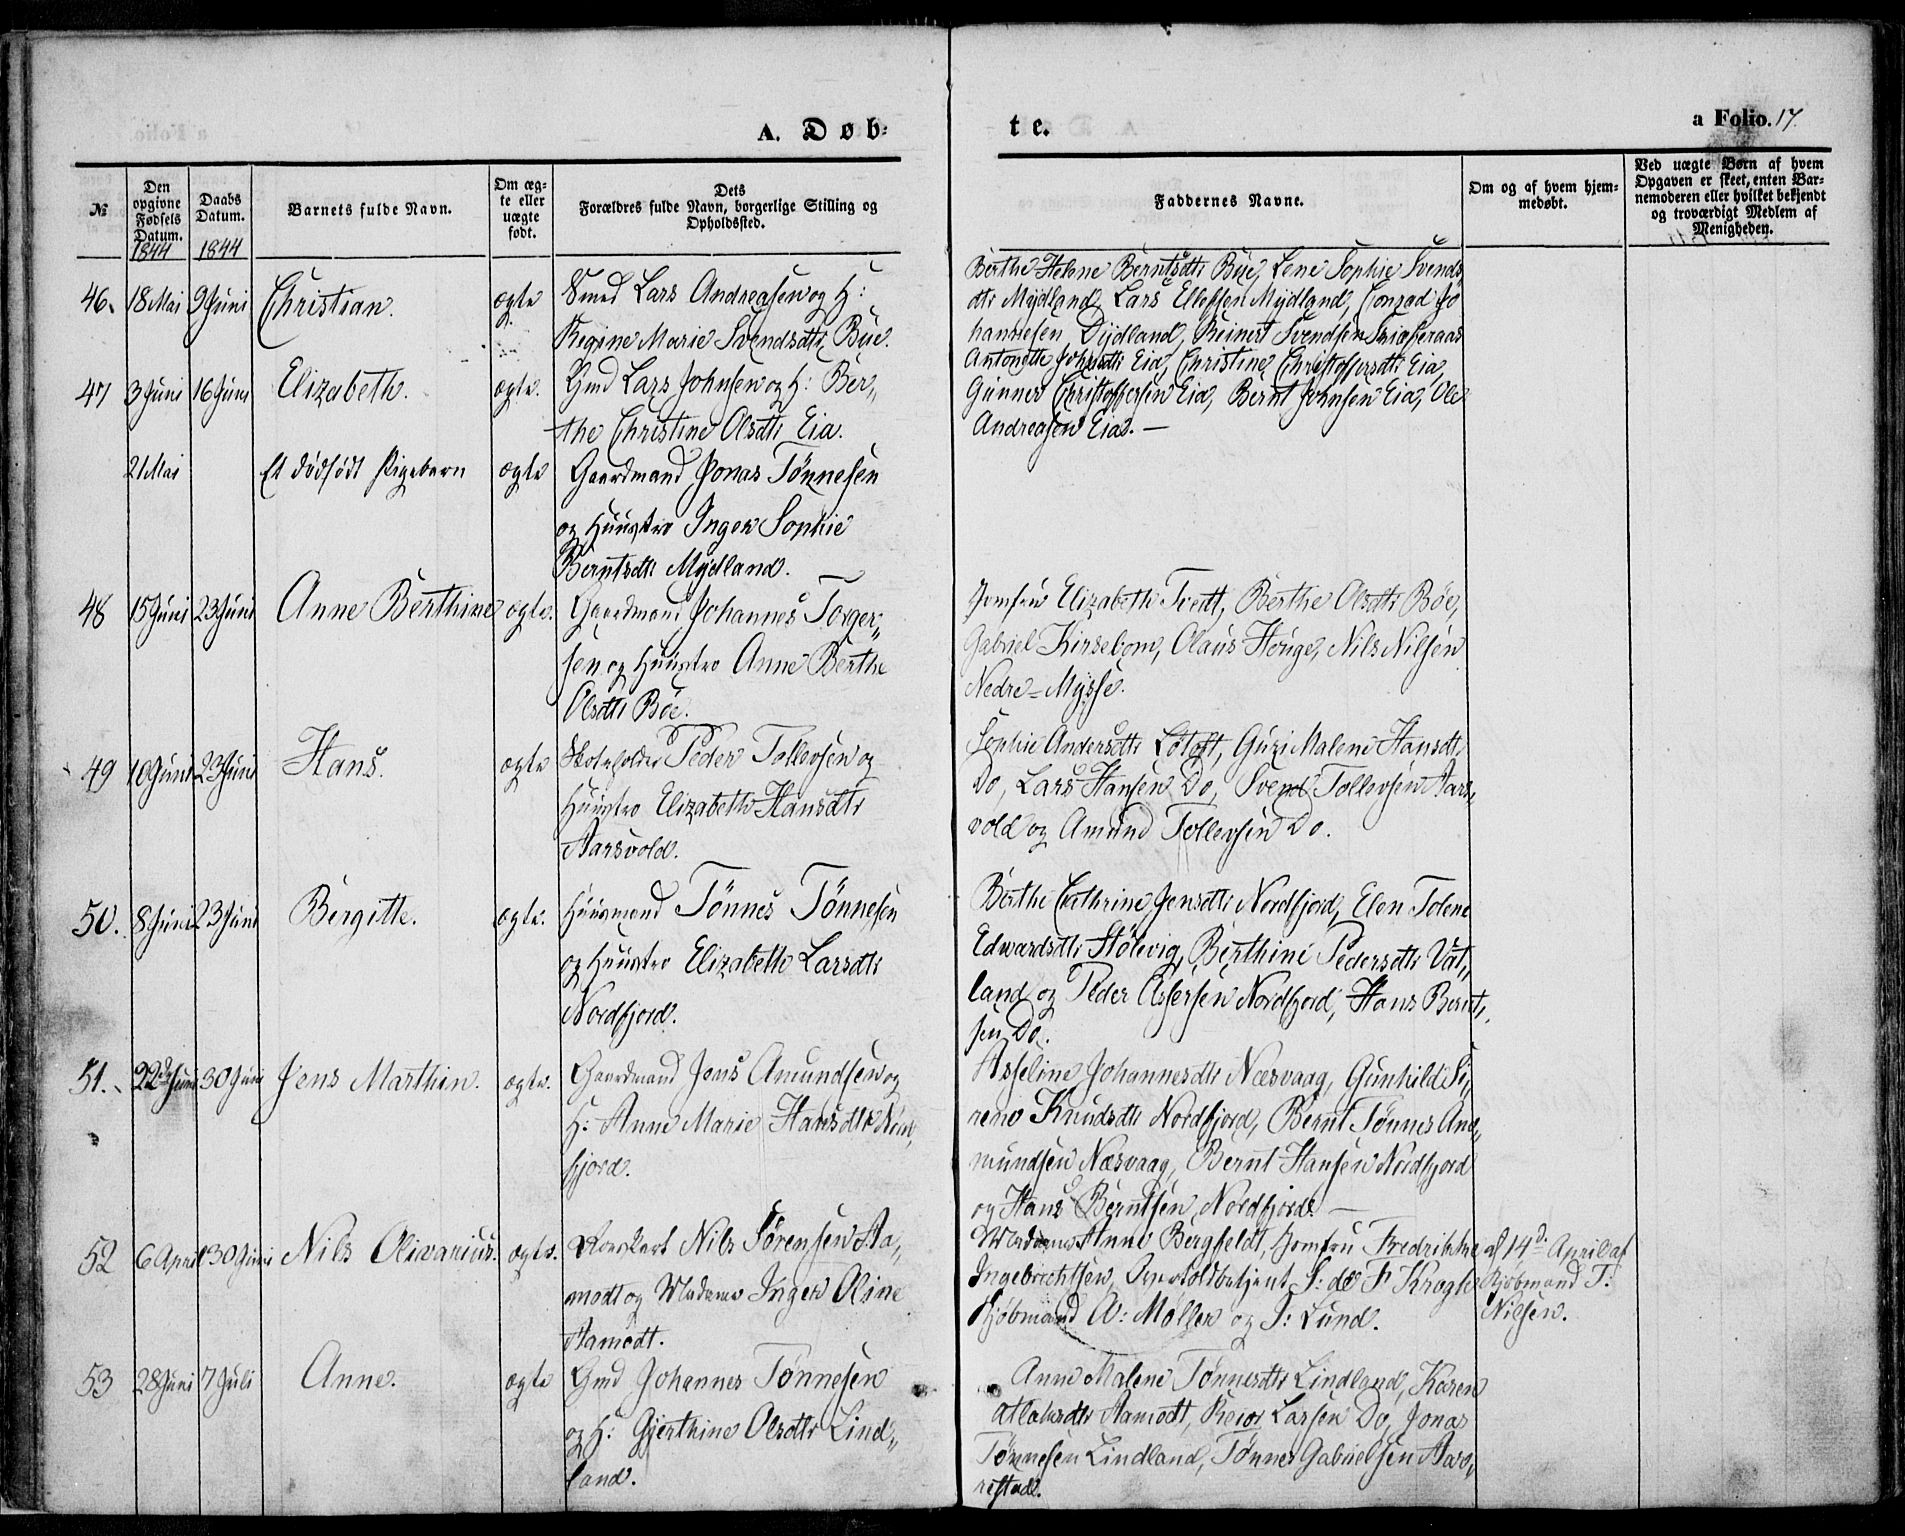 A. Døb-
te.
a Folio. 17.
№
Den opgivne Fødsels Datum. 1844
Daabs Datum. 1844
Barnets fulde Navn.
Om ægte eller uægte født.
Dets Forældres fulde Navn, borgerlige Stilling og Opholdssted.
Faddernes Navne.
Om og af hvem hjemmedøbt.
Ved uægte Børn af hvem Opgaven er skeet, enten Barnemoderen eller hvilket bekjendt og troværdigt Medlem af Menigheden.
46. 18 Mai 9 Juni Christian. ægte
Smed Lars Andreasen og H:
Regine Marie Svendsdtr Bue.
Berthe Helene Berntsdtr Bue, Lene Sophie Svends
dtr Mydland, Lars Ellefsen Mydland, Conrad Jo
hannesen Dydland, Reinert Svendsen
47 3 Juni 16 Juni Elizabeth. ægte.
Gmd Lars Johnsen og H: Ber„
the Christine Olsdtr Eia.
Antonette Johnsdtr Eia, Christine Christoffersdtr Eia,
Gunner Christoffersen Eia, Bernt Johnsen Eia, Ole
Andreasen Eia. —
21 Mai Et dødfødt Pigebarn ægte
Gaardmand Jonas Tönnesen
og Huustro Inger Sophie
Berntsdtr Mydland.
48 15 Juni 23 Juni Anne Berthine ægte.
Gaardmand Johannes Torger„
sen og Huustro Anne Berthe
Olsdtr Böe.
Jomfru Elizabeth Tvedt, Berthe Olsdtr Böe,
Gabriel Kirsebom, Olaus Houge, Nils Nilsen
Nedre-Mysse.
49 10 Juni 23 Juni Hans. ægte
Skoleholder Peder Tollevsen og
Huustro Elizabeth Hansdtr
Aarsvold.
Sophie Andersdtr Lötoft, Guri Malene Hansdtr
Do, Lars Hansen Do, Svend Tollevsen Aars„
vold og Amund Tollevsen Do.
50. 8 Juni 23 Juni Bergitte. ægte.
Huusmand Tönnes Tönnesen
og Huustro Elizabeth Larsdtr
Nordfjord.
Berthe Cathrine Jensdtr Nordfjord, Elen Tolene
Edwardsdtr Stölevig, Berthine Pedersdtr Vat„
land og Peder Assersen Nordfjord, Hans Bernt„
sen Do.
51. 22de Juni 30 Juni Jens Marthin. ægte.
Gaardmand Jens Amundsen og
H: Anne Marie Hansdtr Nord„
fjord.
Asseline Johannesdtr Næsvaag, Gunhild Si„
rene Knudsdtr Nordfjord, Bernt Tönnes An„
mundsen Næsvaag, Bernt Hansen Nordfjord
og Hans Berntsen Nordfjord. —
52 6 April 30 Juni Nils Olivarius. ægte.
Nils Sörensen Aa„
modt og Madame Inger Oline
Aamodt.
Madame Anne Bergfeldt, Jomfru Fredrikke
Ingebrechtsen, Overtoldbetjent S: de F Kragh
Kjöbmand A: Möller og J: Lund.
af 14d. April af
Kjöbmand T.
Nilsen.
53 28 Juni 7 Juli Anne. ægte
Gmd Johannes Tönnesen
og H: Gjerthine Olsdtr Lind„
land.
Anne Malene Tönnesdtr Lindland, Karen
Atlaksdtr Aamodt, Reier Larsen Do, Jonas
Tönnesen Lindland, Tönnes Gabrielsen Aare„
restad.